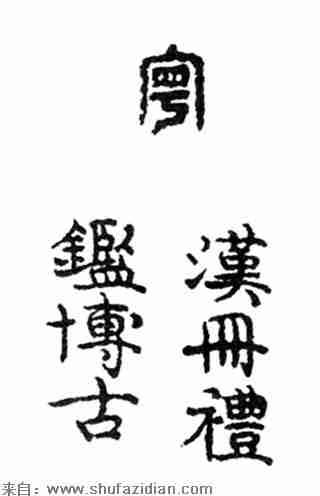 漢冊禮
鑑博古
来自：www.shufazidian.com